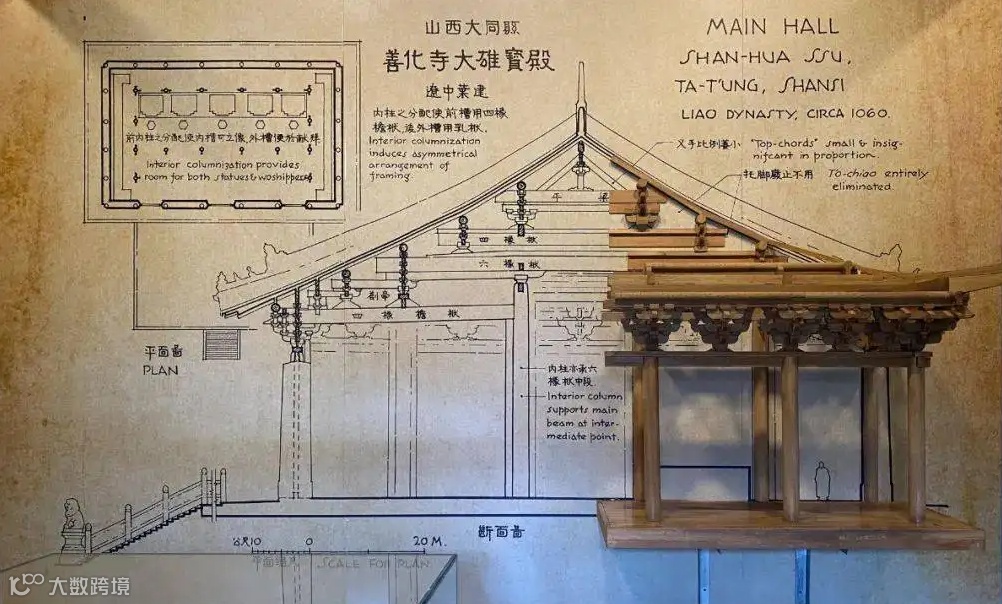 山西大同縣
善化寺大雄寶殿
遼中葉建
內柱之分配使前槽用四椽
檐栿,後外槽用乳栿.
Interior columnization
induces asymmetrical
arrangement of
framing.
MAIN HALL
SHAN-HUA SSU,
TA-T'UNG, SHANSI
LIAO DYNASTY, CIRCA 1060.
叉手比例甚小
"Top-chords" small & insig-
nificant in proportion.
托脚廢止不用
To-chiao entirely
eliminated.
前內柱之分配使內槽可立像,外槽便於獻拜
Interior columnization provides
room for both statues & woshippers
平梁
四椽栿
六椽栿
劄牽
四椽檐栿
內柱亦承六
椽栿中段
Interior column
supports main
beam at inter-
mediate point.
平面圖
PLAN
斷面圖
公尺10 0 20 M.
SCALE FOR PLAN
大数跨境